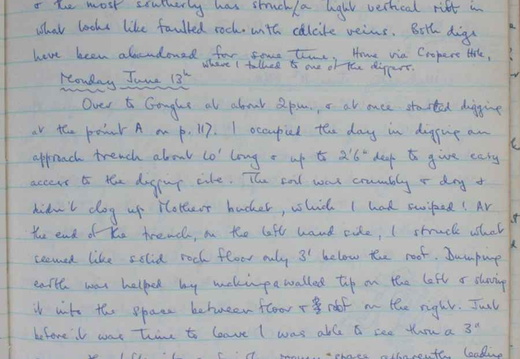 & the most southerly has struck a tight vertical rift in
what looks like faulted rock with calcite veins. Both digs
have been abandoned for some time. Home via Coopers Hole,
where I talked to one of the diggers.
Monday June 13th
Over to Goughs at about 2pm., & at once started digging
at the point A on p. 117. I occupied the day in digging an
approach trench about 10' long & up to 2'6" deep to give easy
access to the digging site. The soil was crumbly & dry &
didn't clog up Mothers bucket, which I had swiped! At
the end of the trench, on the left hand side, I struck what
seemed like solid rock floor only 3' below the roof. Dumping
earth was helped by making a walled tip on the left & shoving
it into the space between floor & roof on the right. Just
before it was time to leave I was able to see thro a 3"
the left apparently leading